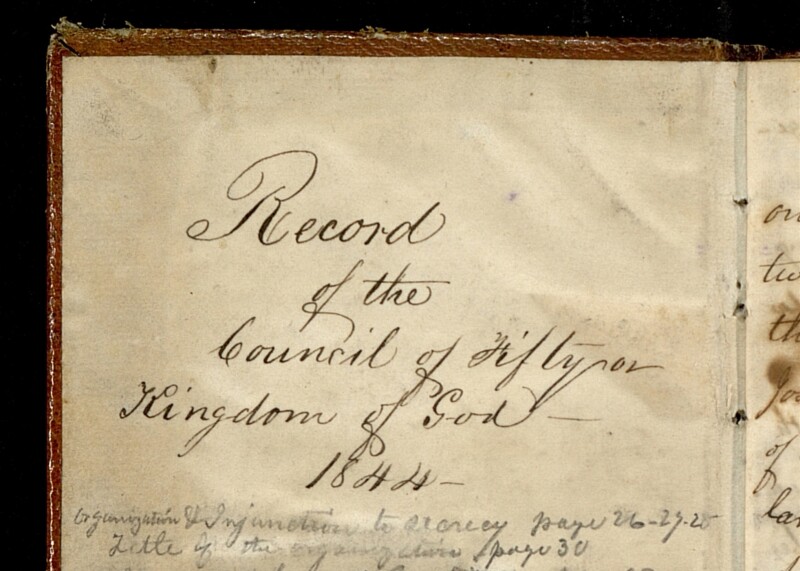 Record
of the
Council of Fifty or
Kingdom of God —
1844 —
Organization & Injunction to secrecy page 26-27-28
Title of the organization, page 30
on
tw
th
Jo
of
lar